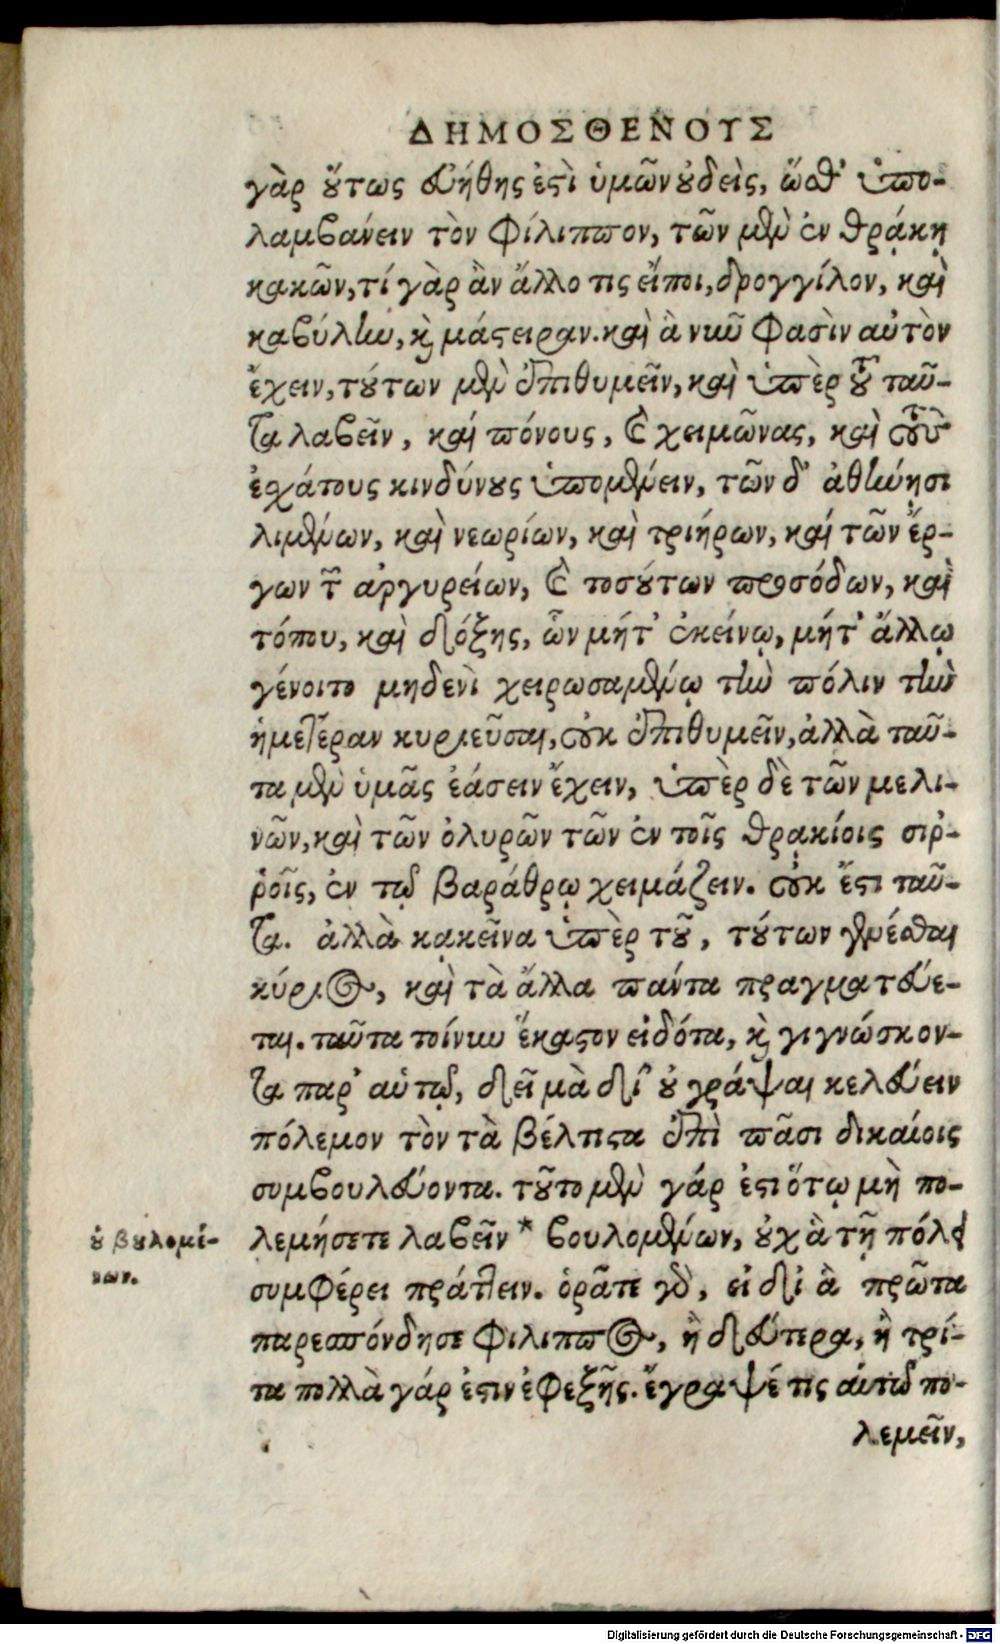 ΔΗΜΟΣΘΕΝΟΥΣ
γὰρ ὅυτως ἐυήθης ἐστὶ ὑμῶν ὀυδεὶς, ὥσθ' ὑπο-
λαμβάνειν τὸν Φίλιππον, τῶν μὲν ἐν θρᾴκῃ
κακῶν, τί γὰρ ἂν ἄλλο τις εἴποι, δρογγίλον, καὶ
καβύλην, καὶ μάστειραν. καὶ ἃ νῦν φασὶν αὐτὸν
ἔχειν, τούτων μὲν ἐπιθυμεῖν, καὶ ὑπὲρ τοῦ ταῦ-
τα λαβεῖν, καὶ πόνους, καὶ χειμῶνας, καὶ τοὺς
ἐσχάτους κινδύνους ὑπομένειν, τῶν δ' ἀθήνῃσι
λιμένων, καὶ νεωρίων, καὶ τριήρων, καὶ τῶν ἔρ-
γων τῶν ἀργυρείων, καὶ τοσούτων προσόδων, καὶ
τόπου, καὶ δόξης, ὧν μήτ' ἐκείνῳ, μήτ' ἄλλῳ
γένοιτο μηδενὶ χειρωσαμένῳ τὴν πόλιν τὴν
ἡμετέραν κυριεῦσαι, οὐκ ἐπιθυμεῖν, ἀλλὰ ταῦ-
τα μὲν ὑμᾶς ἐάσειν ἔχειν, ὑπὲρ δὲ τῶν μελι-
νῶν, καὶ τῶν ὀλυρῶν τῶν ἐν τοῖς θρᾳκίοις σιῤ-
ῥοῖς, ἐν τῷ βαράθρῳ χειμάζειν. οὐκ ἔστι ταῦ-
τα. ἀλλὰ κᾳκεῖνα ὑπὲρ τοῦ, τούτων γενέσθαι
κύριος, καὶ τὰ ἄλλα πάντα πραγματεύε-
ται. ταῦτα τοίνυν ἕκαστον εἰδότα, καὶ γιγνώσκον-
τα παρ' αὑτῷ, δεῖ μὰ δί' οὐ γράψαι κελεύειν
πόλεμον τὸν τὰ βέλτιστα ἐπὶ πᾶσι δικαίοις
συμβουλεύοντα. τοῦτο μὲν γάρ ἐστι ὅτῳ μὴ πο-
λεμήσετε λαβεῖν * βουλομένων, οὐχ ἃ τῇ πόλει
συμφέρει πράττειν. ὁρᾶτε γὰρ, εἰ δἰ ἃ πρῶτα
παρεσπόνδησε Φίλιππος, ἢ δεύτερα, ἢ τρί-
τα πολλὰ γάρ ἐστιν ἐφεξῆς. ἔγραψέ τις αὐτῷ πο-
λεμεῖν,
οὐ βουλομέ-
νων.